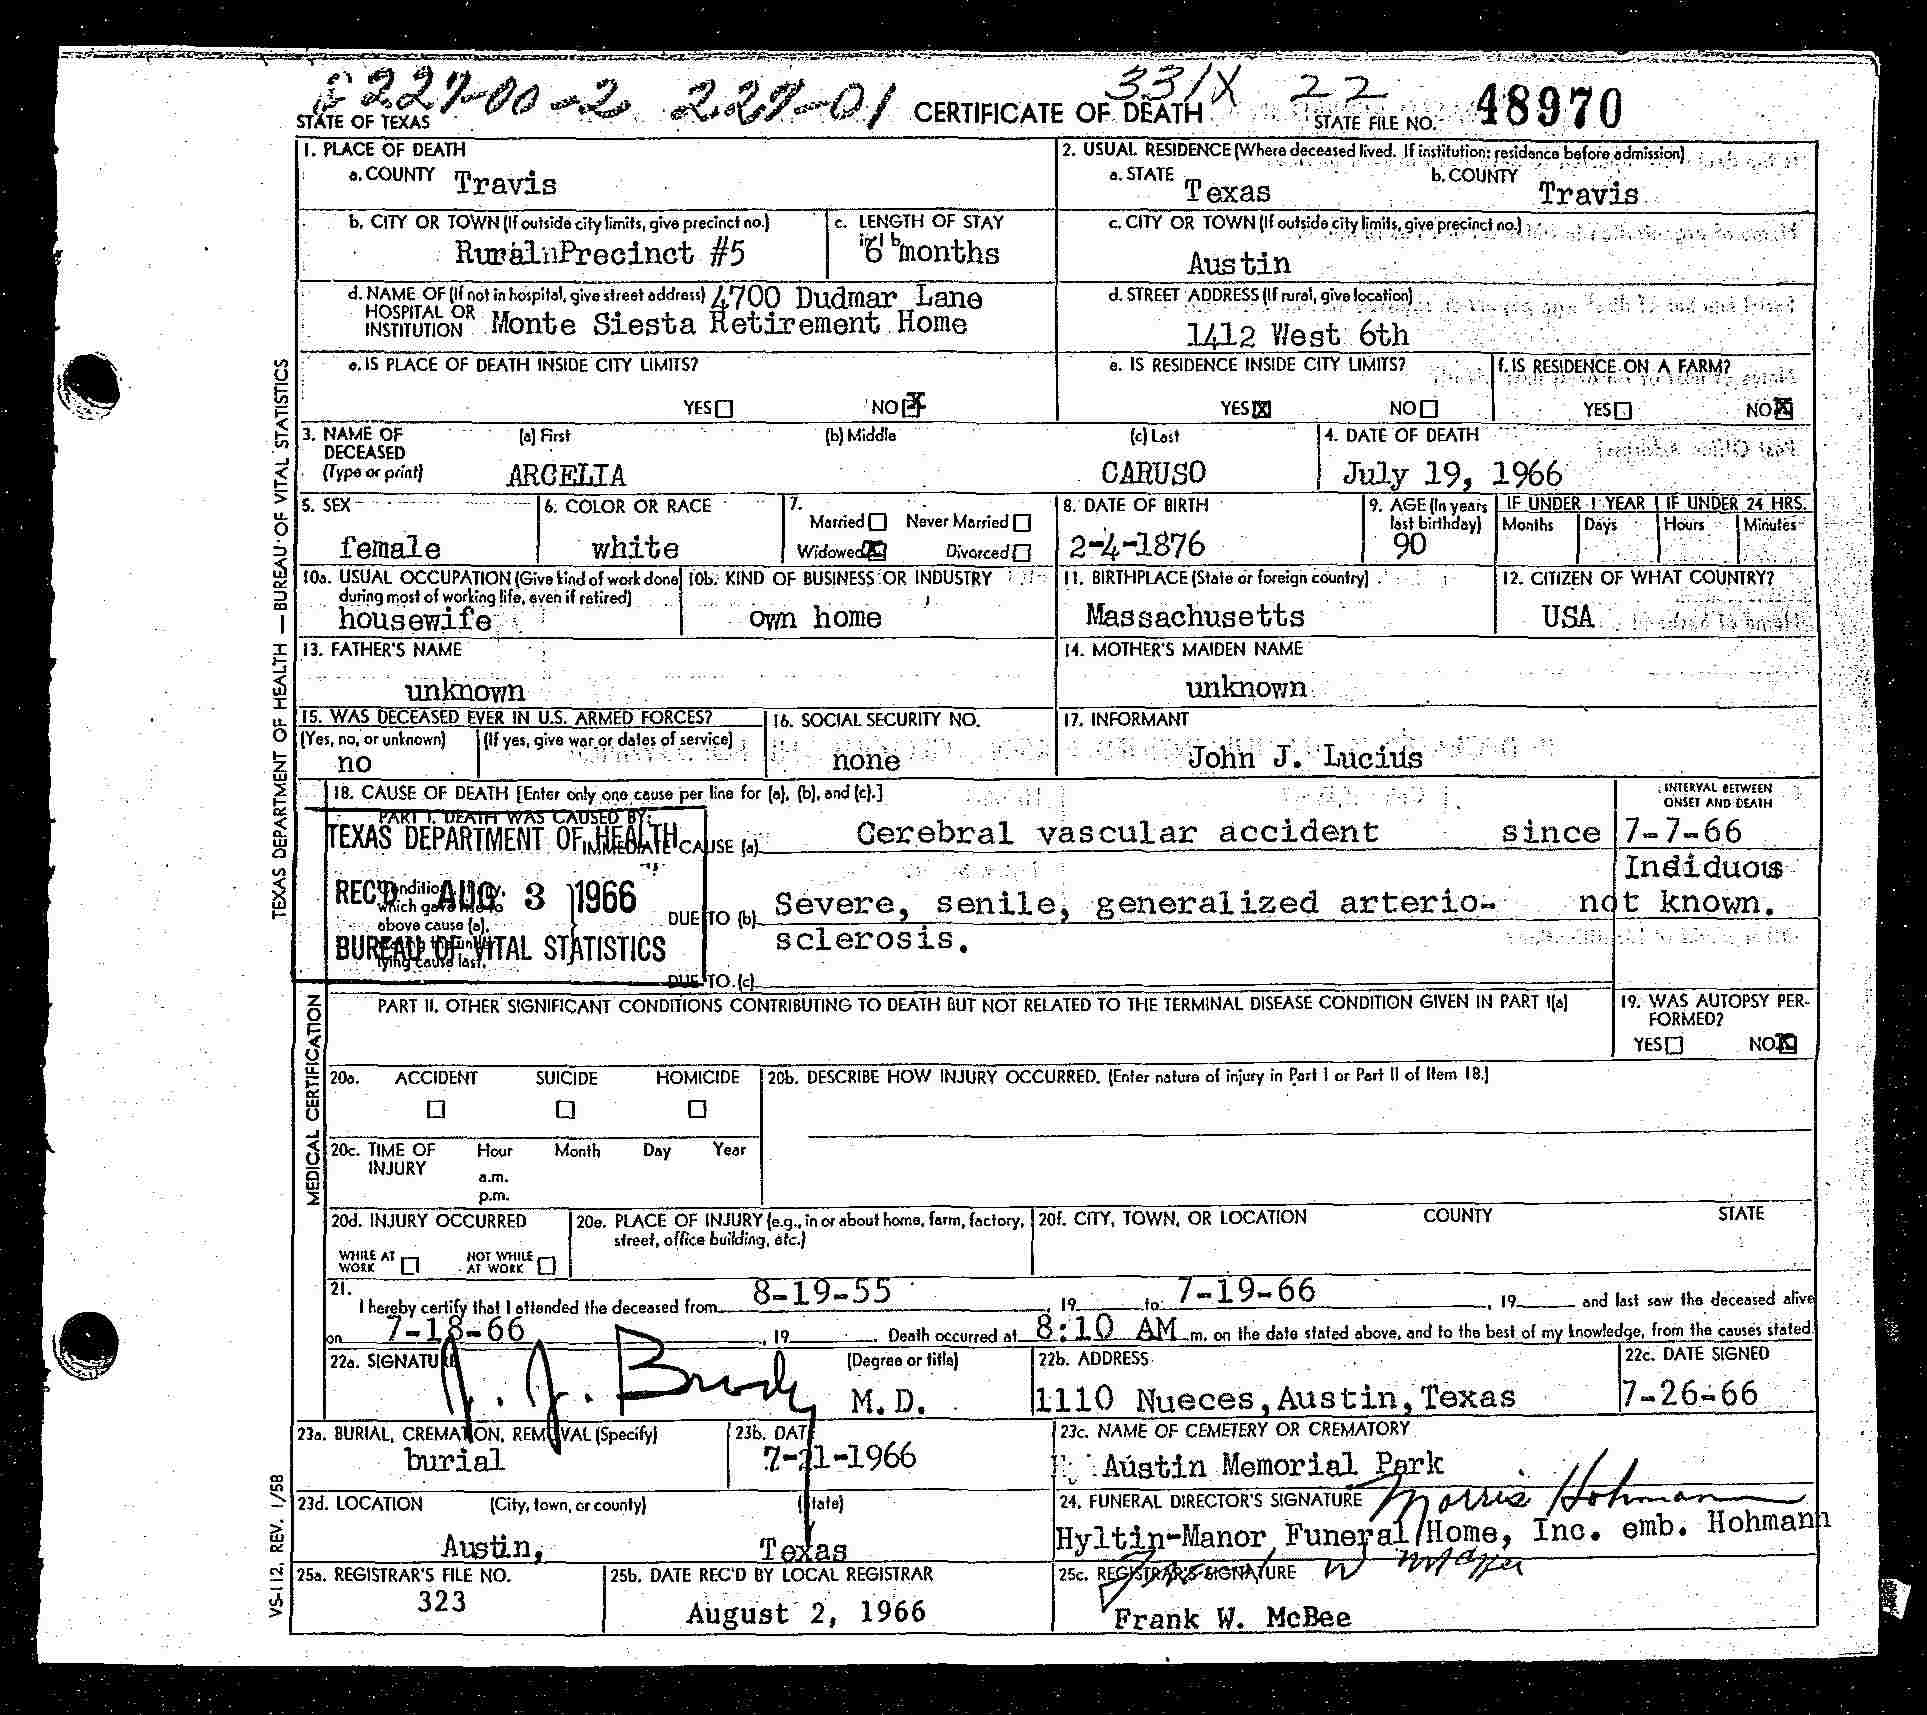 227-00-2 227-01 331X 22
STATE OF TEXAS CERTIFICATE OF DEATH STATE FILE NO. 48970
1. PLACE OF DEATH
a. COUNTY Travis
2. USUAL RESIDENCE (Where deceased lived. If institution: residence before admission)
a. STATE Texas b. COUNTY Travis
b. CITY OR TOWN (If outside city limits, give precinct no.)
Rural Precinct #5
c. LENGTH OF STAY
in 1 b
6 months
c. CITY OR TOWN (If outside city limits, give precinct no.)
Austin
d. NAME OF (If not in hospital, give street address) 4700 Dudmar Lane
HOSPITAL OR
INSTITUTION Monte Siesta Retirement Home
d. STREET ADDRESS (If rural, give location)
1412 West 6th
e. IS PLACE OF DEATH INSIDE CITY LIMITS?
YES☐ NO☒
e. IS RESIDENCE INSIDE CITY LIMITS?
YES☒ NO☐
f. IS RESIDENCE ON A FARM?
YES☐ NO☒
3. NAME OF DECEASED (Type or print)
(a) First (b) Middle (c) Last
ARCELIA CARUSO
4. DATE OF DEATH
July 19, 1966
5. SEX
female
6. COLOR OR RACE
white
7.
Married☐ Never Married☐
Widowed☒ Divorced☐
8. DATE OF BIRTH
2-4-1876
9. AGE (In years last birthday)
90
IF UNDER 1 YEAR IF UNDER 24 HRS.
Months Days Hours Minutes
10a. USUAL OCCUPATION (Give kind of work done
during most of working life, even if retired)
housewife
10b. KIND OF BUSINESS OR INDUSTRY
own home
11. BIRTHPLACE (State or foreign country)
Massachusetts
12. CITIZEN OF WHAT COUNTRY?
USA
13. FATHER'S NAME
unknown
14. MOTHER'S MAIDEN NAME
unknown
15. WAS DECEASED EVER IN U.S. ARMED FORCES?
(Yes, no, or unknown) (If yes, give war or dates of service)
no
16. SOCIAL SECURITY NO.
none
17. INFORMANT
John J. Lucius
18. CAUSE OF DEATH [Enter only one cause per line for (a), (b), and (c).]
INTERVAL BETWEEN
ONSET AND DEATH
PART I. DEATH WAS CAUSED BY:
IMMEDIATE CAUSE (a) Cerebral vascular accident since 7-7-66
TEXAS DEPARTMENT OF HEALTH
REC'D AUG 3 1966
BUREAU OF VITAL STATISTICS
which gave rise to
above cause (a),
lying cause last.
Insiduous
DUE TO (b) Severe, senile, generalized arterio- not known.
sclerosis.
DUE TO (c)
PART II. OTHER SIGNIFICANT CONDITIONS CONTRIBUTING TO DEATH BUT NOT RELATED TO THE TERMINAL DISEASE CONDITION GIVEN IN PART I(a)
19. WAS AUTOPSY PER-
FORMED?
YES☐ NO☒
20a. ACCIDENT SUICIDE HOMICIDE
☐ ☐ ☐
20b. DESCRIBE HOW INJURY OCCURRED. (Enter nature of injury in Part I or Part II of Item 18.)
20c. TIME OF Hour Month Day Year
INJURY
a.m.
p.m.
20d. INJURY OCCURRED
WHILE AT WORK ☐ NOT WHILE AT WORK ☐
20e. PLACE OF INJURY (e.g., in or about home, farm, factory,
street, office building, etc.)
20f. CITY, TOWN, OR LOCATION COUNTY STATE
21.
I hereby certify that I attended the deceased from 8-19-55, 19 to 7-19-66, 19 and last saw the deceased alive
on 7-18-66, 19. Death occurred at 8:10 AM m. on the date stated above, and to the best of my knowledge, from the causes stated.
22a. SIGNATURE (Degree or title)
J. J. Brady M.D.
22b. ADDRESS
1110 Nueces, Austin, Texas
22c. DATE SIGNED
7-26-66
23a. BURIAL, CREMATION, REMOVAL (Specify)
burial
23b. DATE
7-21-1966
23c. NAME OF CEMETERY OR CREMATORY
Austin Memorial Park
23d. LOCATION (City, town, or county) (State)
Austin, Texas
24. FUNERAL DIRECTOR'S SIGNATURE Morris Hohmann
Hyltin-Manor Funeral Home, Inc. emb. Hohmann
25a. REGISTRAR'S FILE NO.
323
25b. DATE REC'D BY LOCAL REGISTRAR
August 2, 1966
25c. REGISTRAR'S SIGNATURE
Frank W. McBee
TEXAS DEPARTMENT OF HEALTH — BUREAU OF VITAL STATISTICS
MEDICAL CERTIFICATION
VS-112, REV. 1/58